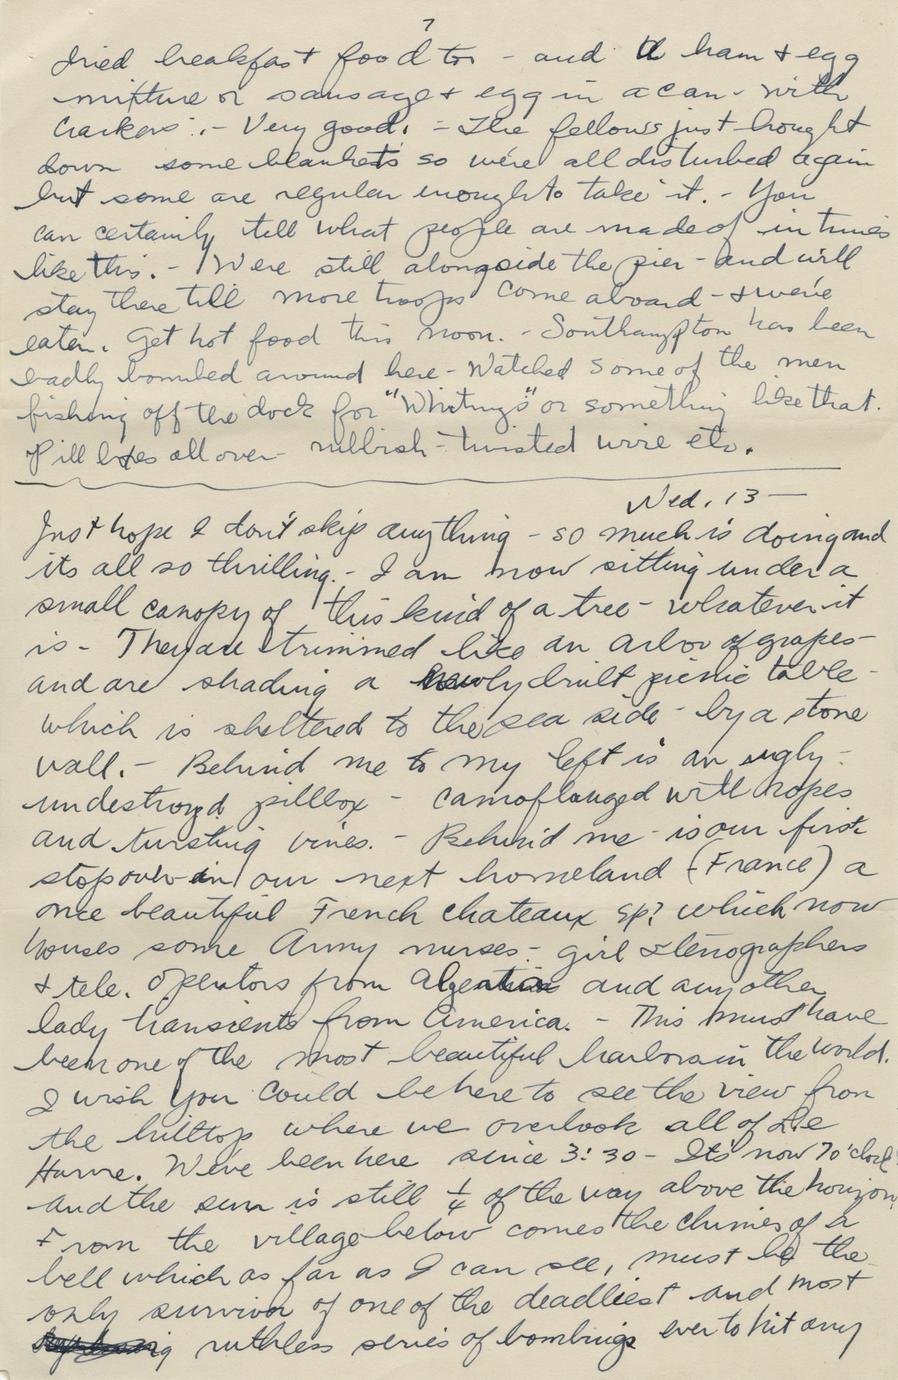 7
dried breakfast food too - and the ham & egg
mixture or sausage & egg in a can - with
crackers. - Very good. - The fellows just brought
down some blankets so we're all disturbed again
but some are regular enough to take it. - You
can certainly tell what people are made of in times
like this. - We're still alongside the pier - and will
stay there till more troops come aboard - & we've
eaten. Get hot food this noon. - Southampton has been
badly bombed around here - Watched some of the men
fishing off the dock for "Whitings" or something like that.
Pill boxes all over - rubbish - twisted wire etc.
Wed. 13 -
Just hope I don't skip anything - so much is doing and
its all so thrilling. - I am now sitting under a
small canopy of this kind of a tree - whatever it
is - They are trimmed like an arbor of grapes -
and are shading a newly built picnic table -
which is sheltered to the sea side - by a stone
wall. - Behind me to my left is an ugly -
undestroyd pillbox - camoflauged with ropes
and twisting vines. - Behind me - is our first
stopover in our next homeland (France) a
once beautiful French chateaux sp? which now
houses some Army nurses - girl stenographers
& tele. operators from and any other
lady transients from America. - This must have
been one of the most beautiful harbors in the world.
I wish you could be here to see the view from
the hilltop where we overlook all of Le
Havre. We've been here since 3:30 - Its now 7 o'clock
and the sun is still 1/4 of the way above the horizon.
From the village below comes the chimes of a
bell which as far as I can see, must be the
only survivor of one of the deadliest and most
ruthless series of bombings ever to hit any